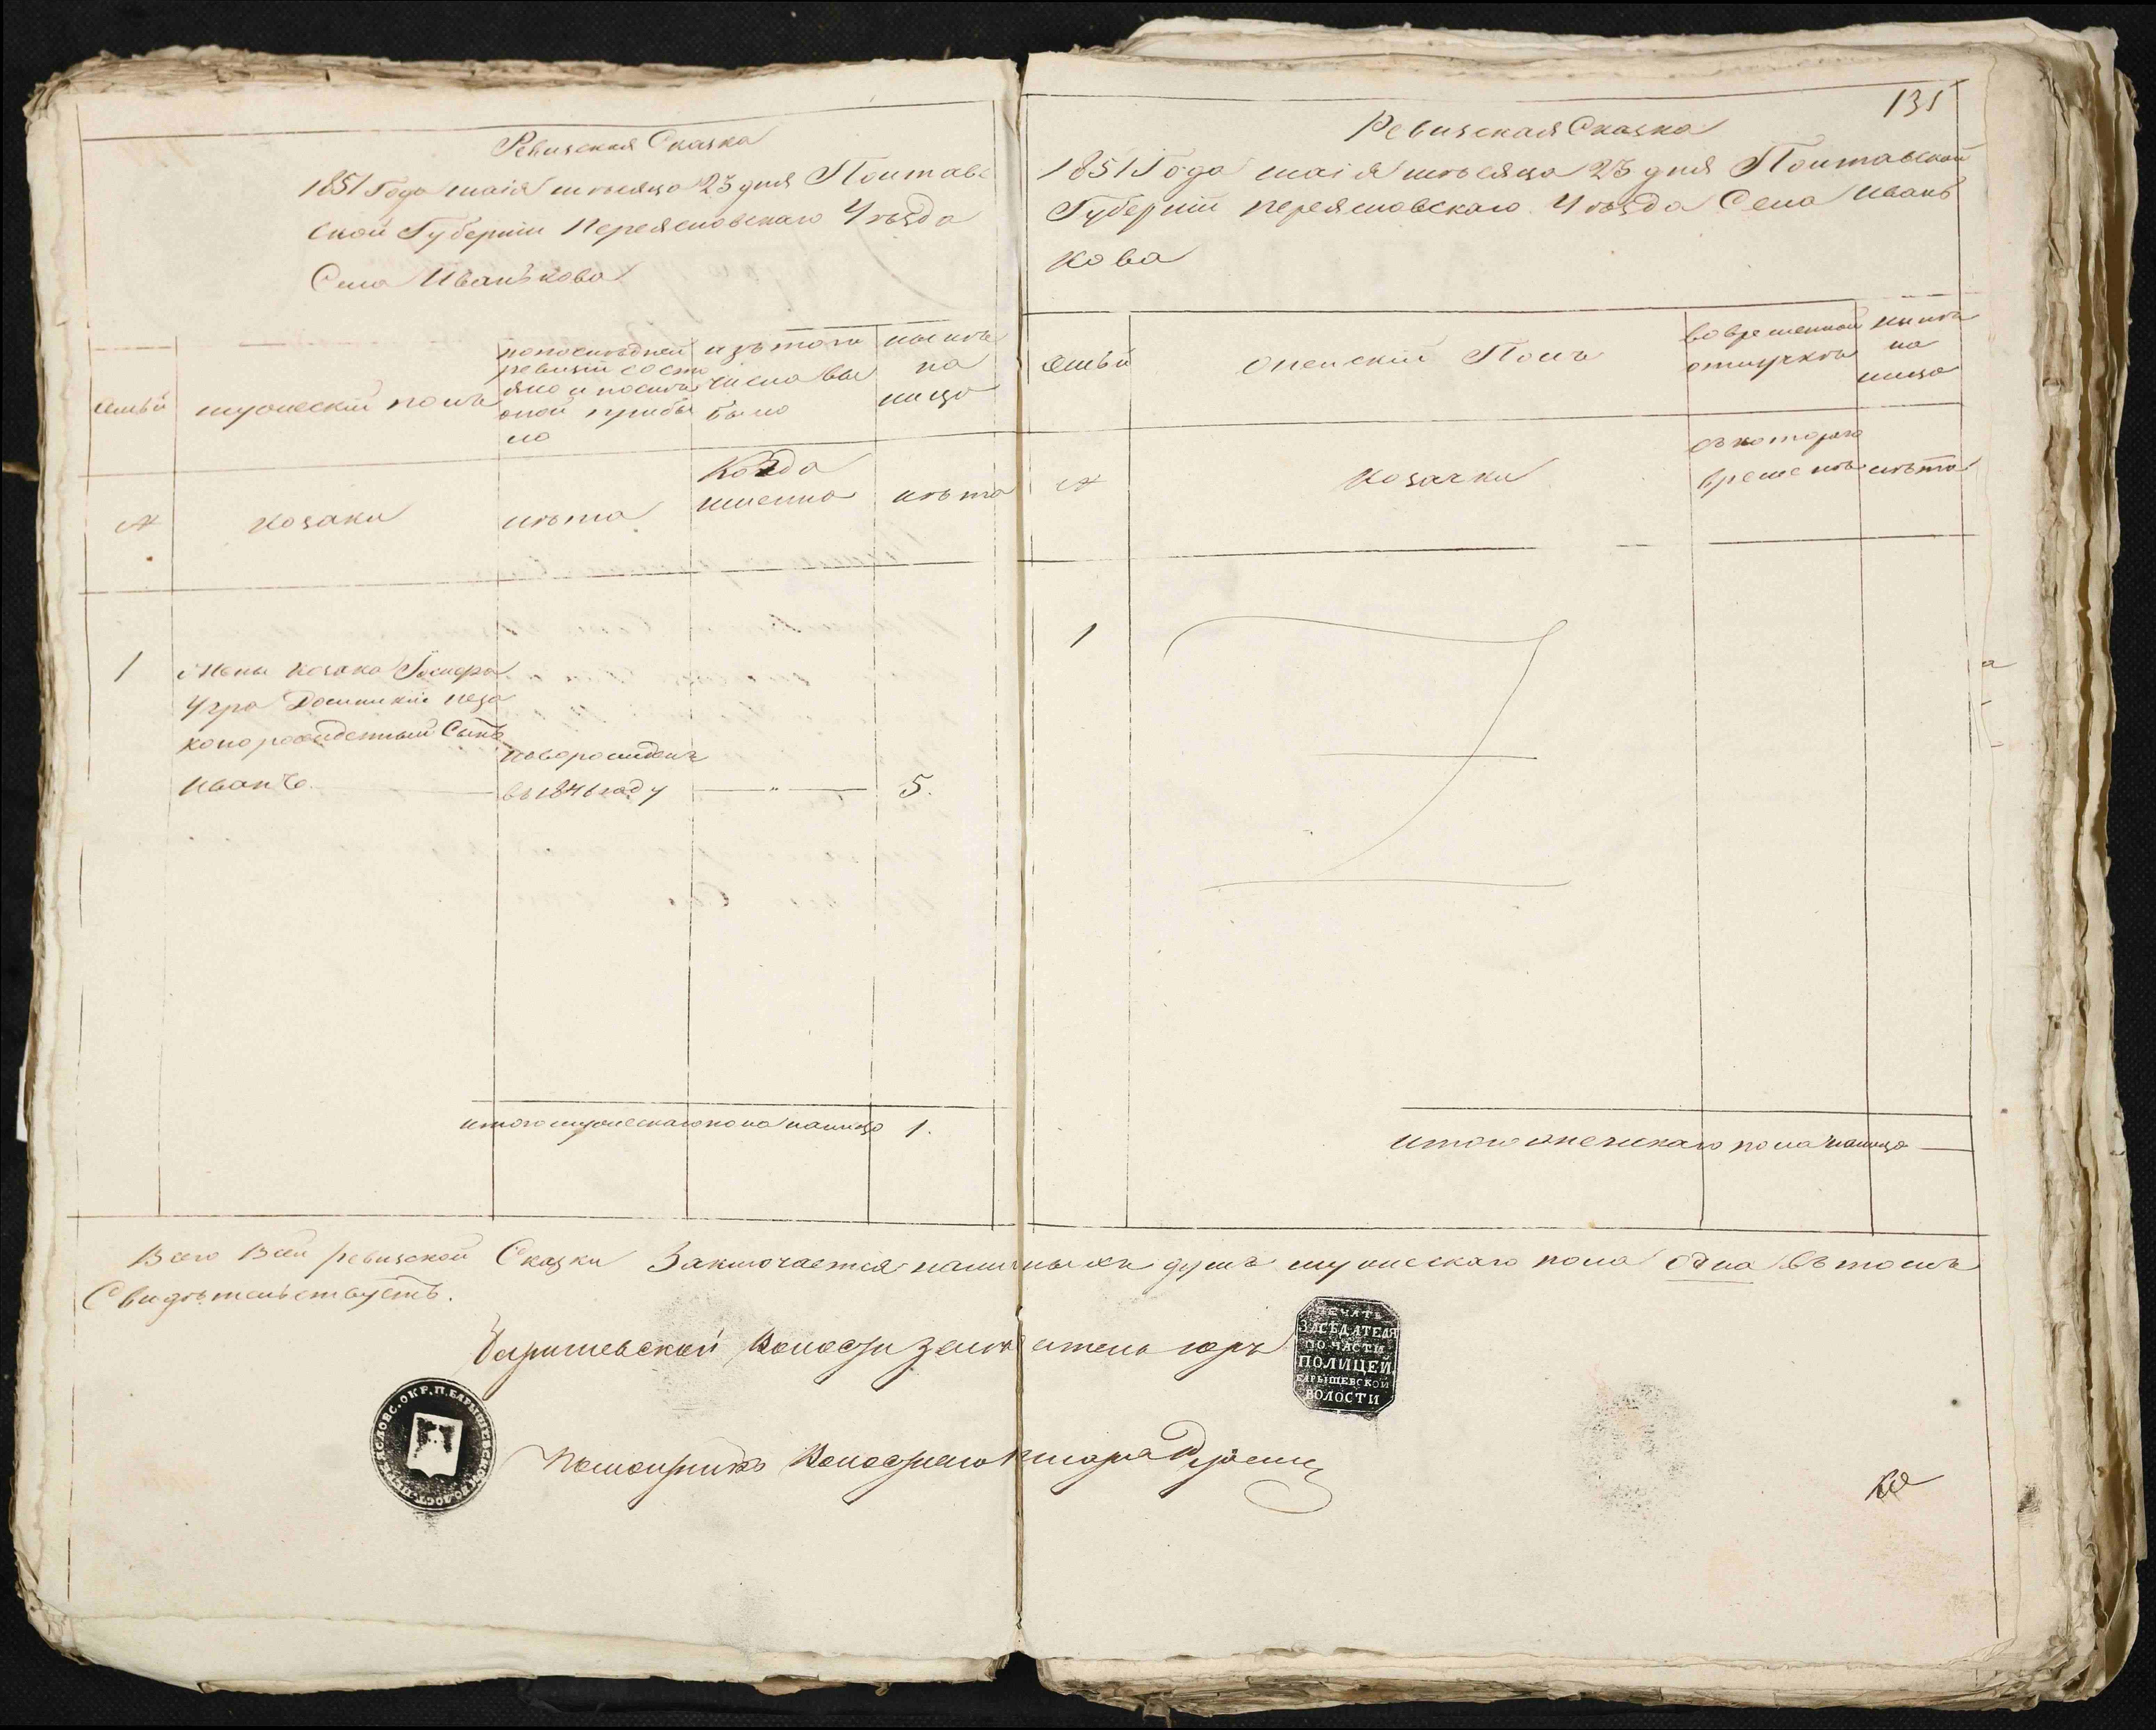 Ревизская Сказка
1851 Года маія мѣсяца 23 дня Полтавс
ской Губерніи Переясловскаго Уѣзда
Села Иванькова
семьи
мужескій полъ
по последней
ревизіи состо
яло и послѣ
оной прибы
ло
изъ того
числа вы
было
нынѣ
на
лицо
№
козаки
лѣта
Когда
именно
лѣта
1
Жены козака Іосифа
Угра Домникіи неза
конорожденный Сынъ
Иванъ
новорожденъ
въ 1846 году
5.
итого мужескаго пола налицо 1.
131
Ревизская Сказка
1851 Года маія мѣсяца 23 дня Полтавской
Губерніи Переясловскаго Уѣзда Села Ивань
кова
семьи
женскій Полъ
во временной
отлучкѣ
нынѣ
на
лицо
№
козачки
съ котораго
времени
лѣта
1
итого женскаго пола налицо
Всего В сей ревизской Сказки Заключается наличныхъ душъ мужескаго пола одна въ томъ
Свидѣтельствуетъ.
Барышевской Волости
ПЕЧАТЬ
ЗАСЕДАТЕЛЯ
ПО ЧАСТИ
ПОЛИЦЕЙ
БАРЫШЕВСКОЙ
ВОЛОСТИ
Помощникъ Волостнаго писаря